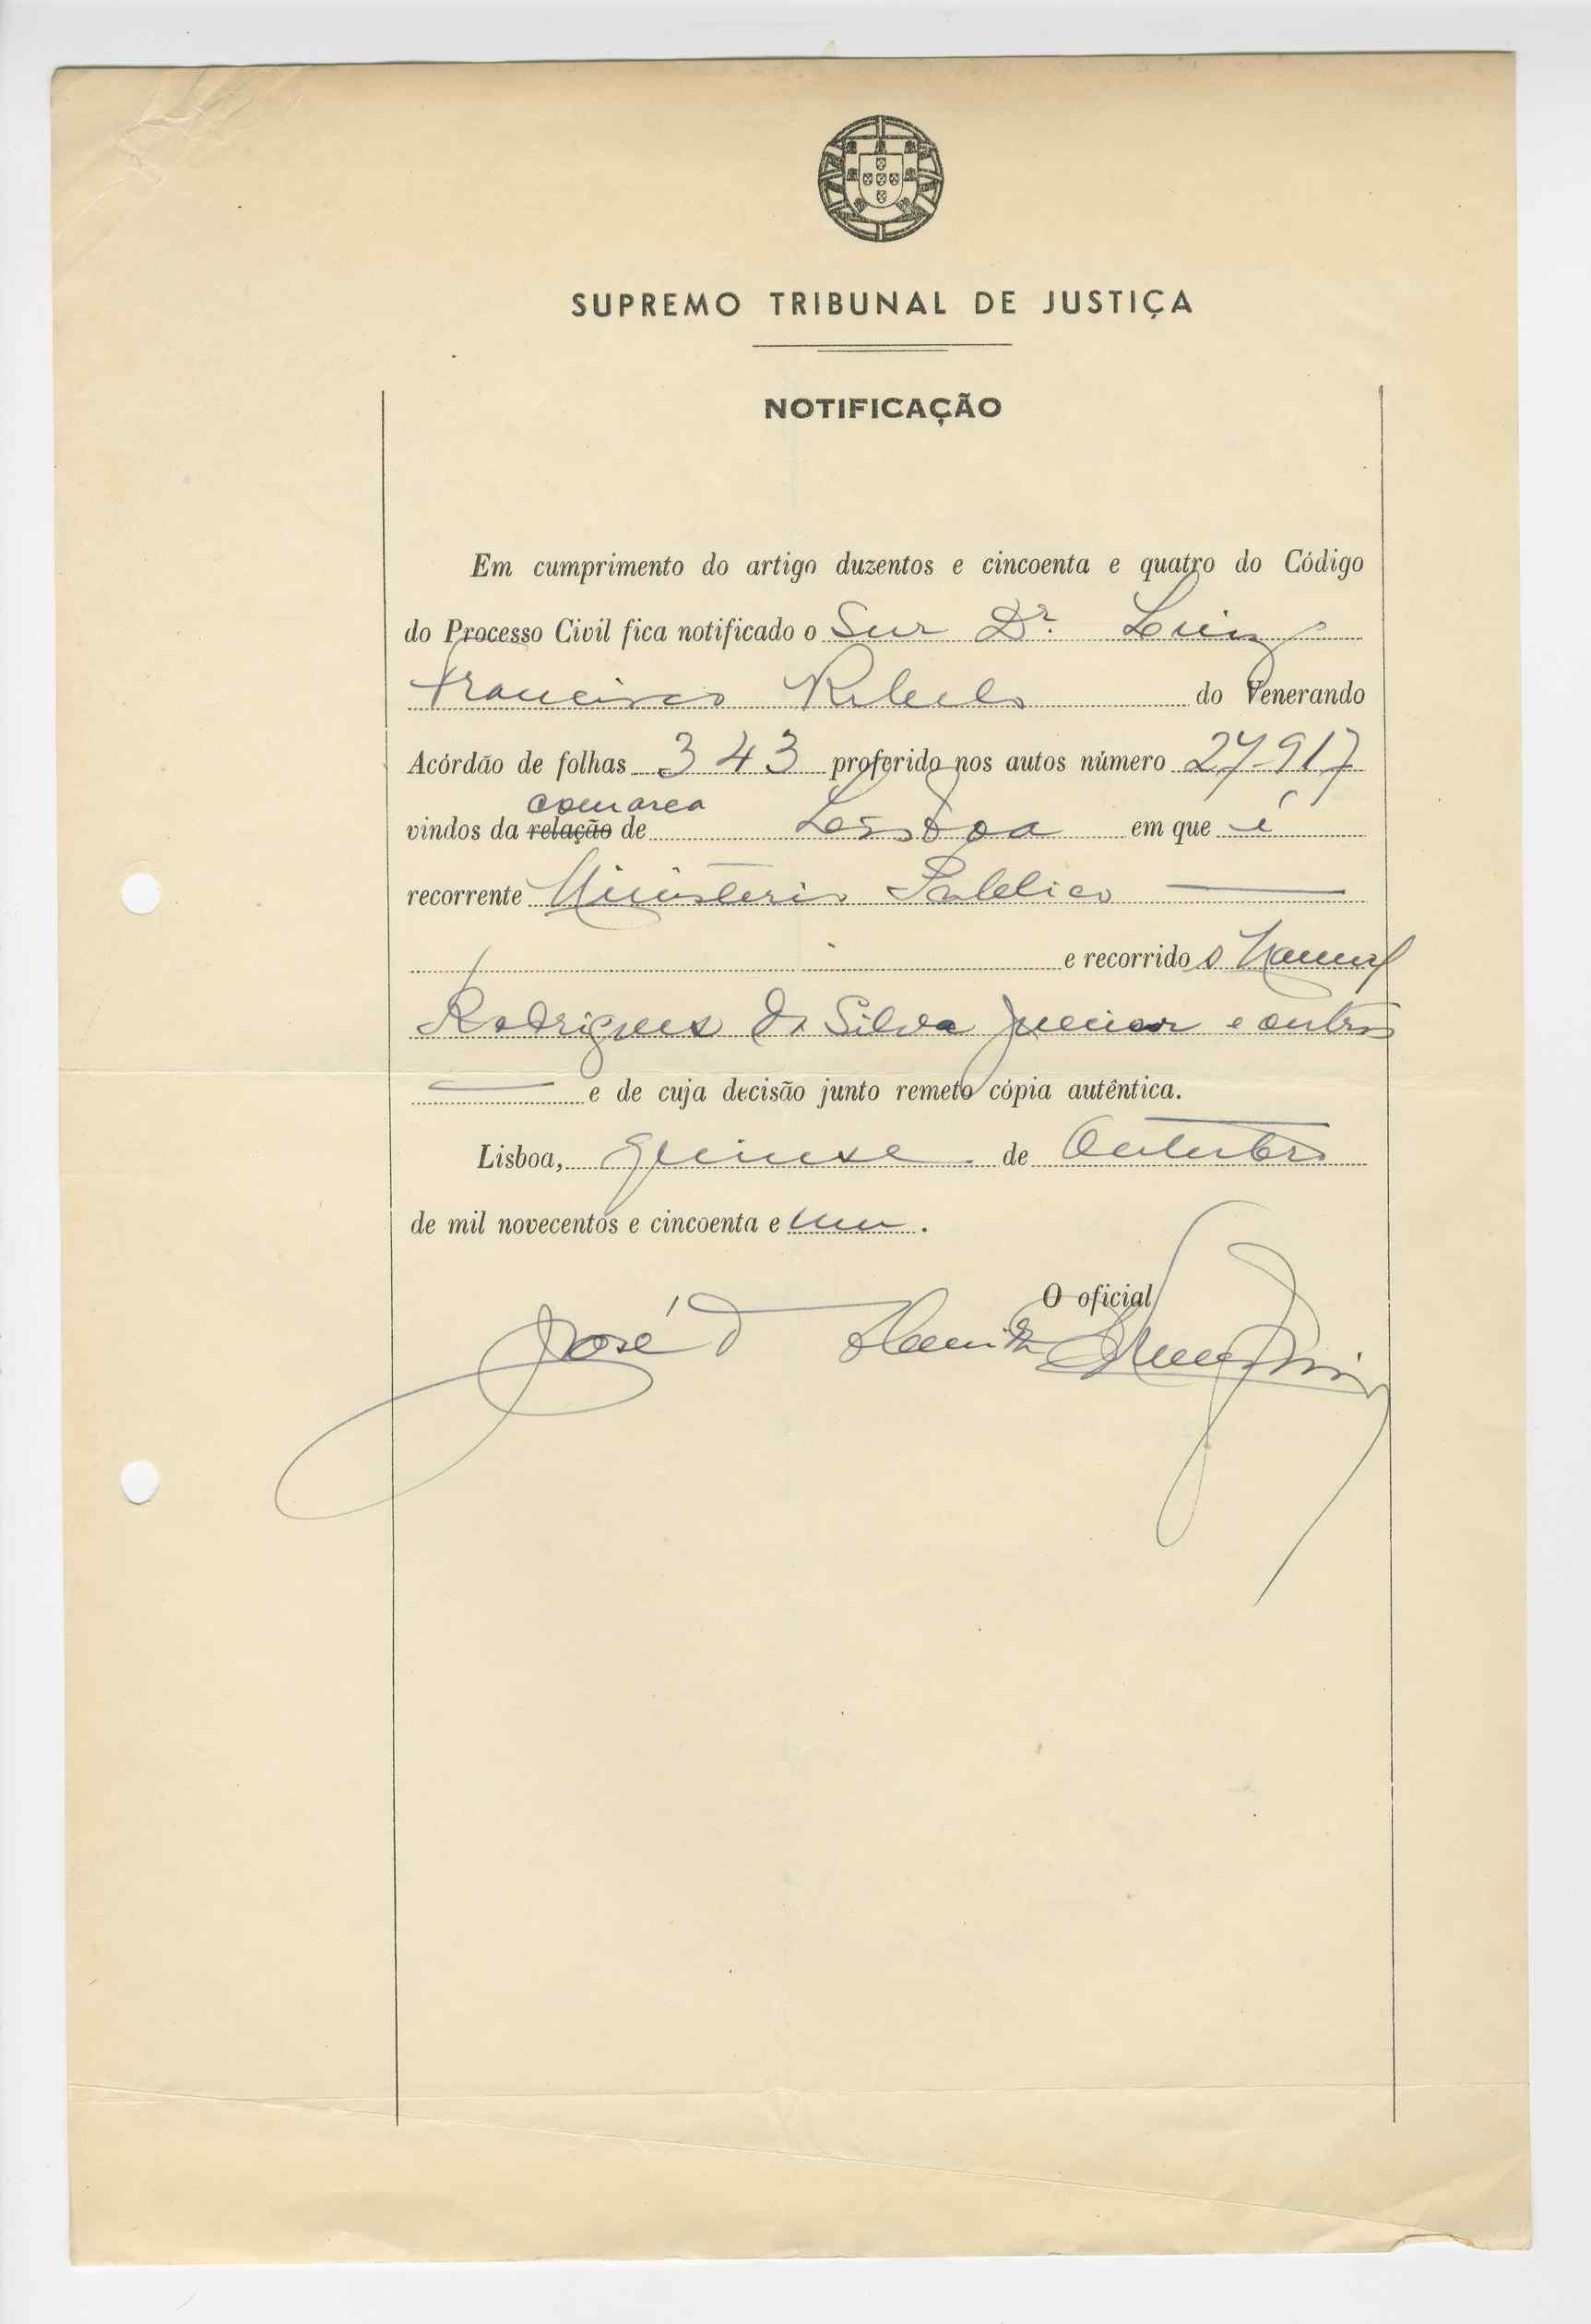 SUPREMO TRIBUNAL DE JUSTIÇA
NOTIFICAÇÃO
Em cumprimento do artigo duzentos e cincoenta e quatro do Código
do Processo Civil fica notificado o Snr Dr. Luiz
Francisco Rebelo do Venerando
Acórdão de folhas 343 proferido nos autos número 27.917
comarca
vindos da relação de Lisboa em que é
recorrente Ministerio Publico
e recorrido o Manuel
Rodrigues da Silva Junior e outros
e de cuja decisão junto remeto cópia autêntica.
Lisboa, quinse de Outubro
de mil novecentos e cincoenta e um.
O oficial
José d'